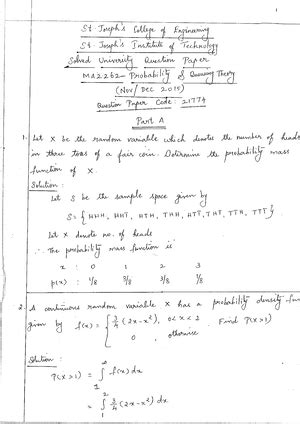 St. Joseph's College of Engineering
St. Joseph's Institute of Technology
Solved University Question Paper
MA2262 - Probability & Queueing Theory
(Nov/Dec 2015)
Question Paper Code: 21774
Part A
1. Let X be the random variable which denotes the number of heads
in three toss of a fair coin. Determine the probability mass
function of X.
Solution:
Let S be the sample space given by
S = { HHH, HHT, HTH, THH, HTT, THT, TTH, TTT }
Let X denote no. of heads
∴ The probability mass function is
x : 0 1 2 3
p(x) : 1/8 3/8 3/8 1/8
2. A continuous random variable X has a probability density fun
given by f(x) = { 3/4 (2x-x²), 0<x<2 Find P(X>1)
0, otherwise
Solution:
P(X>1) = ∫₁^∞ f(x) dx
= ∫₁² 3/4 (2x-x²) dx